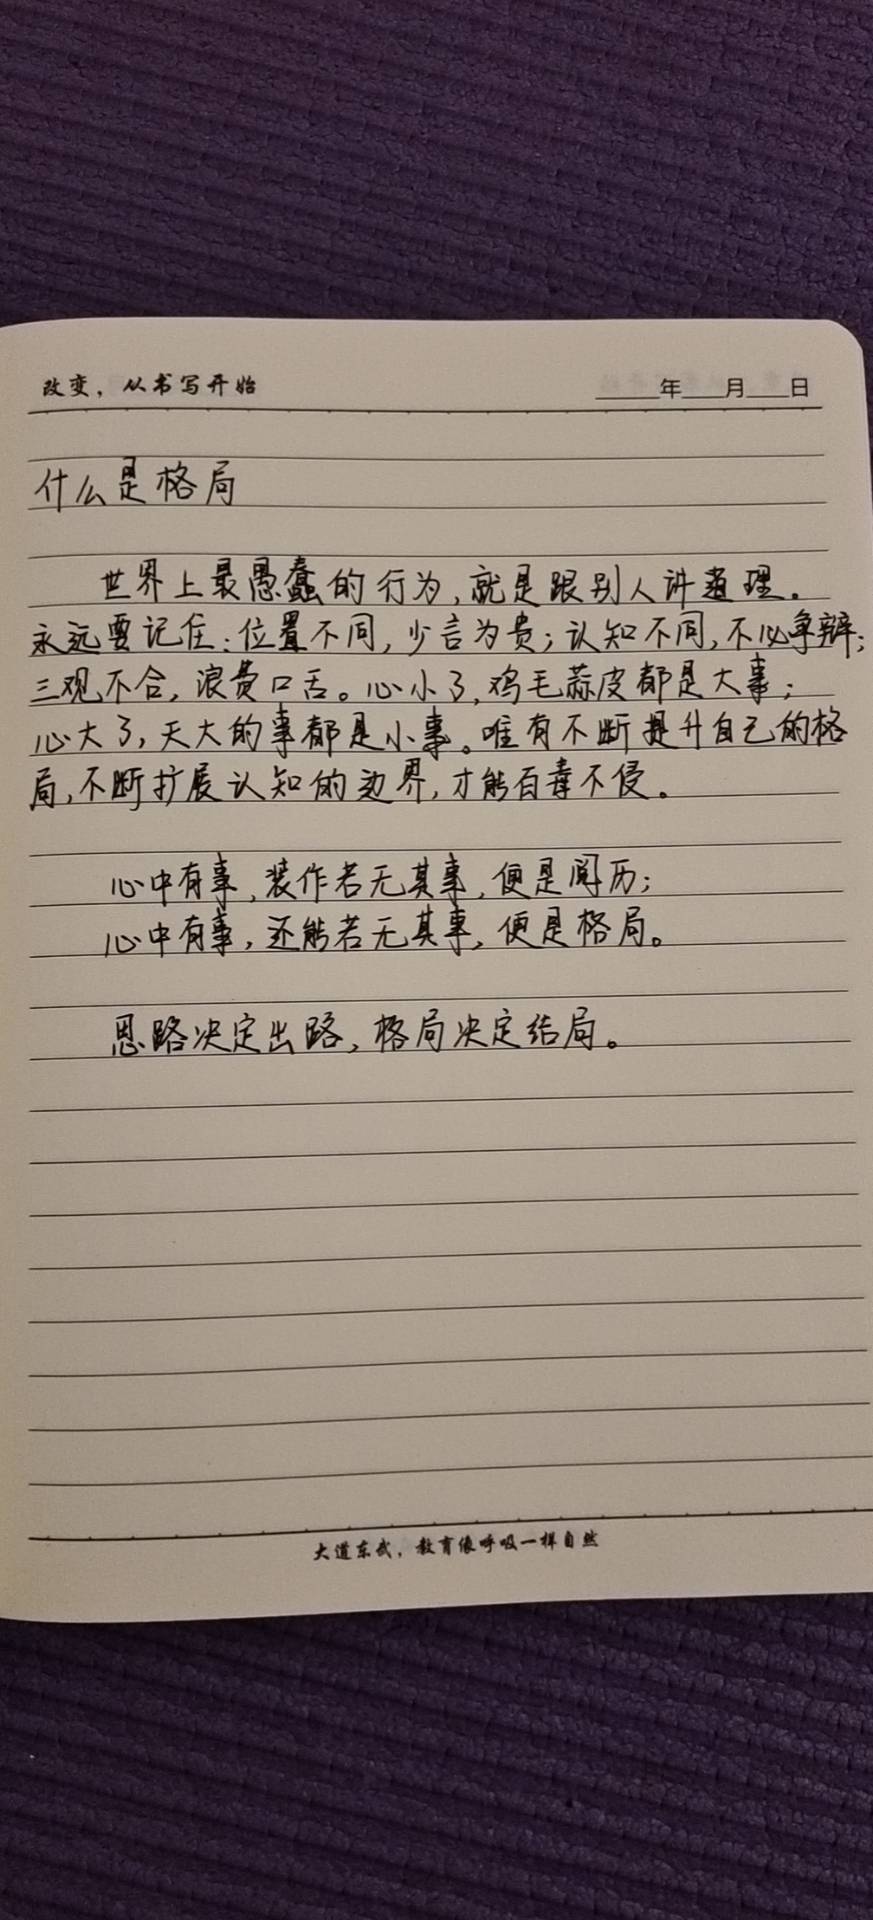 改变，从书写开始
年 月 日
什么是格局
世界上最愚蠢的行为，就是跟别人讲道理。
永远要记住：位置不同，少言为贵；认知不同，不必争辩；
三观不合，浪费口舌。心小了，鸡毛蒜皮都是大事；
心大了，天大的事都是小事。唯有不断提升自己的格
局，不断扩展认知的边界，才能百毒不侵。
心中有事，装作若无其事，便是阅历；
心中有事，还能若无其事，便是格局。
思路决定出路，格局决定结局。
大道东武，教育像呼吸一样自然